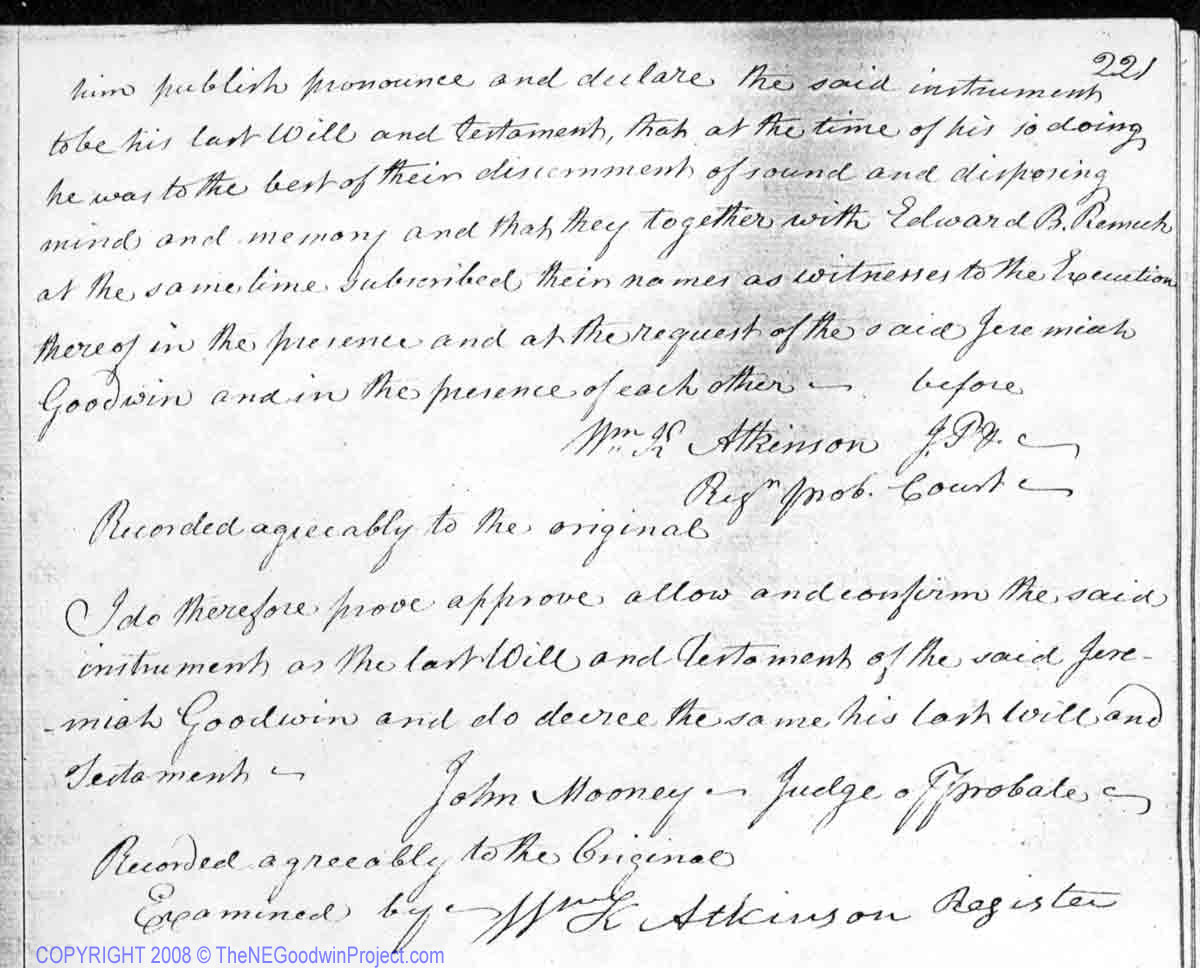 221
him publish pronounce and declare the said instrument
to be his last Will and Testament, that at the time of his so doing
he was to the best of their discernment of sound and disposing
mind and memory and that they together with Edward B. Remick
at the same time subscribed their names as witnesses to the Execution
thereof in the presence and at the request of the said Jeremiah
Goodwin and in the presence of each other — before
Wm K Atkinson J. P.
Regr prob. Court
Recorded agreeably to the original
I do therefore prove approve allow and confirm the said
instrument as the last Will and Testament of the said Jere-
-miah Goodwin and do decree the same his last Will and
Testament
John Mooney Judge of Probate
Recorded agreeably to the Original
Examined by Wm K Atkinson Register
COPYRIGHT 2008 © TheNEGoodwinProject.com